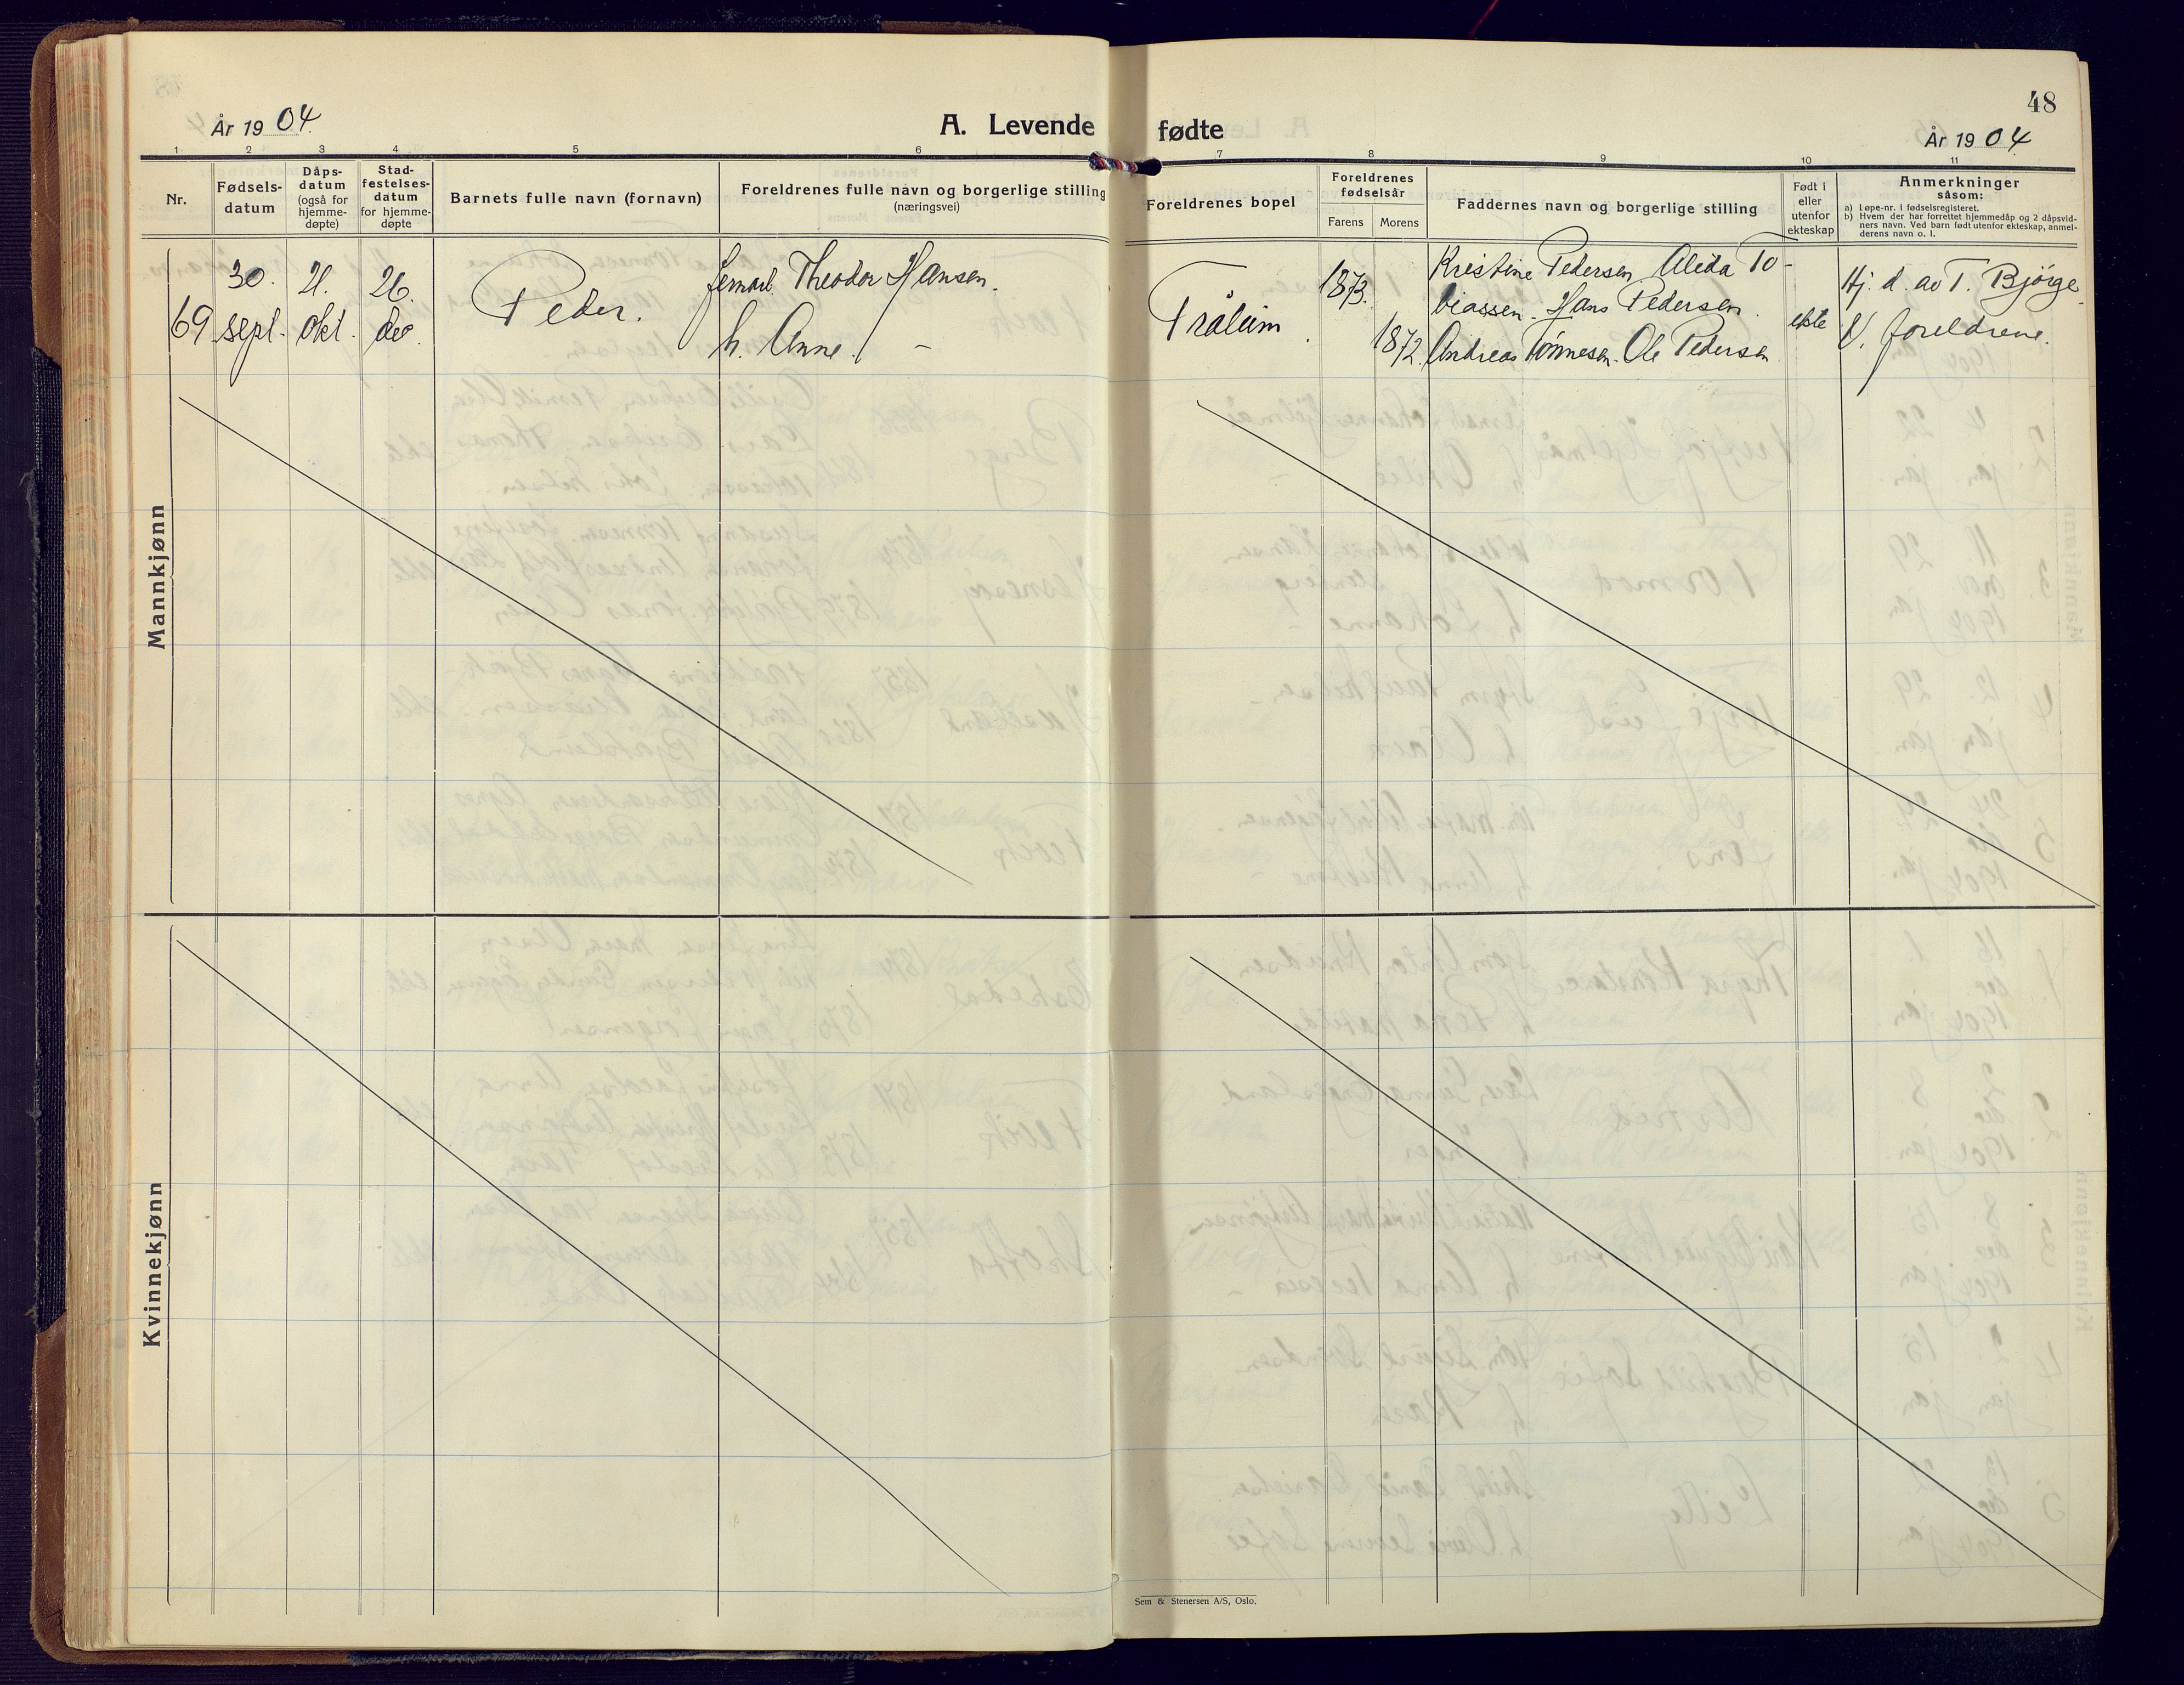 48
År 1904.
A. Levende fødte
År 1904
1 2 3 4 5 6 7 8 9 10 11
Nr.
Fødsels-
datum
Dåps-
datum
(også for
hjemme-
døpte)
Stad-
festelses-
datum
for hjemme-
døpte
Barnets fulle navn (fornavn)
Foreldrenes fulle navn og borgerlige stilling
(næringsvei)
Foreldrenes bopel
Foreldrenes
fødselsår
Farens Morens
Faddernes navn og borgerlige stilling
Født i
eller
utenfor
ekteskap
Anmerkninger
såsom:
a) Løpe-nr. i fødselsregisteret.
b) Hvem der har forrettet hjemmedåp og 2 dåpsvid-
ners navn. Ved barn født utenfor ekteskap, anmel-
derens navn o. l.
Mannkjønn
69
30.
sept.
21.
okt.
26.
de
Peder.
Theodor Hansen.
h. Anne. -
1873.
1872.
Kristine Pedersen, Alida To-
biassen. Hans Pedersen.
Andreas Tønnesen. Ole Pedersen
ekte
Hj. d. av T. Bjørge.
V. foreldrene.
Kvinnekjønn
Sem & Stenersen A/S, Oslo.